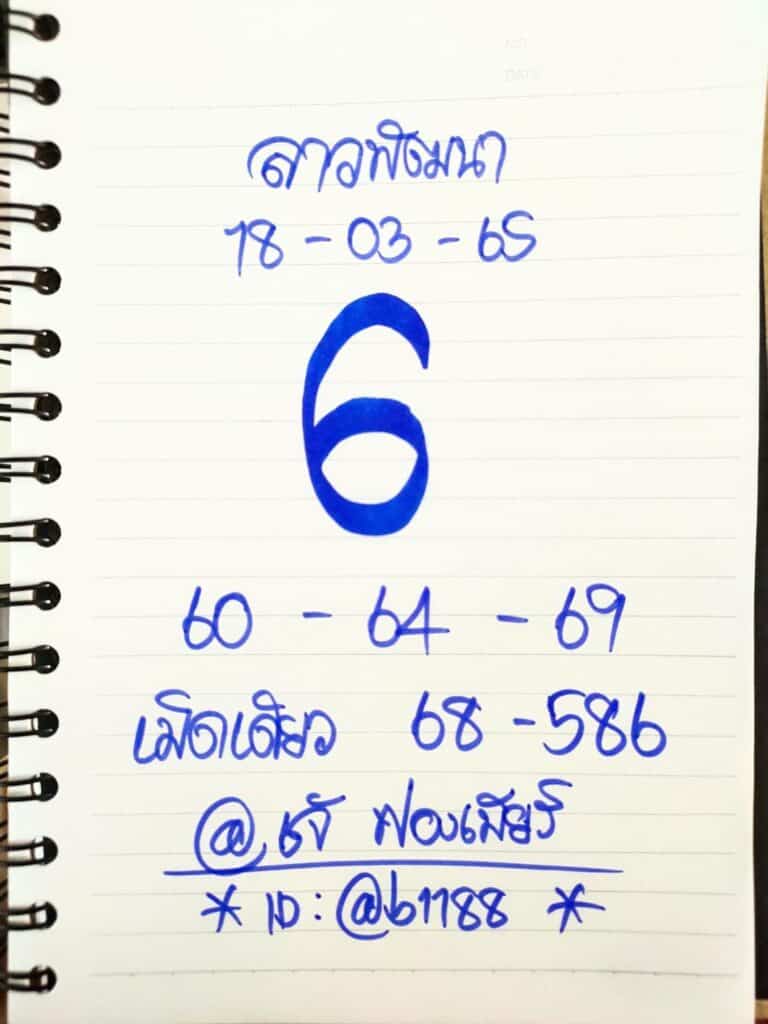 NO.
DATE
ลาวพัฒนา
18 - 03 - 65
6
60 - 64 - 69
เม็ดเดียว 68 - 586
@ เจ๊ ฟองเบียร์
* ID : @b1188 *